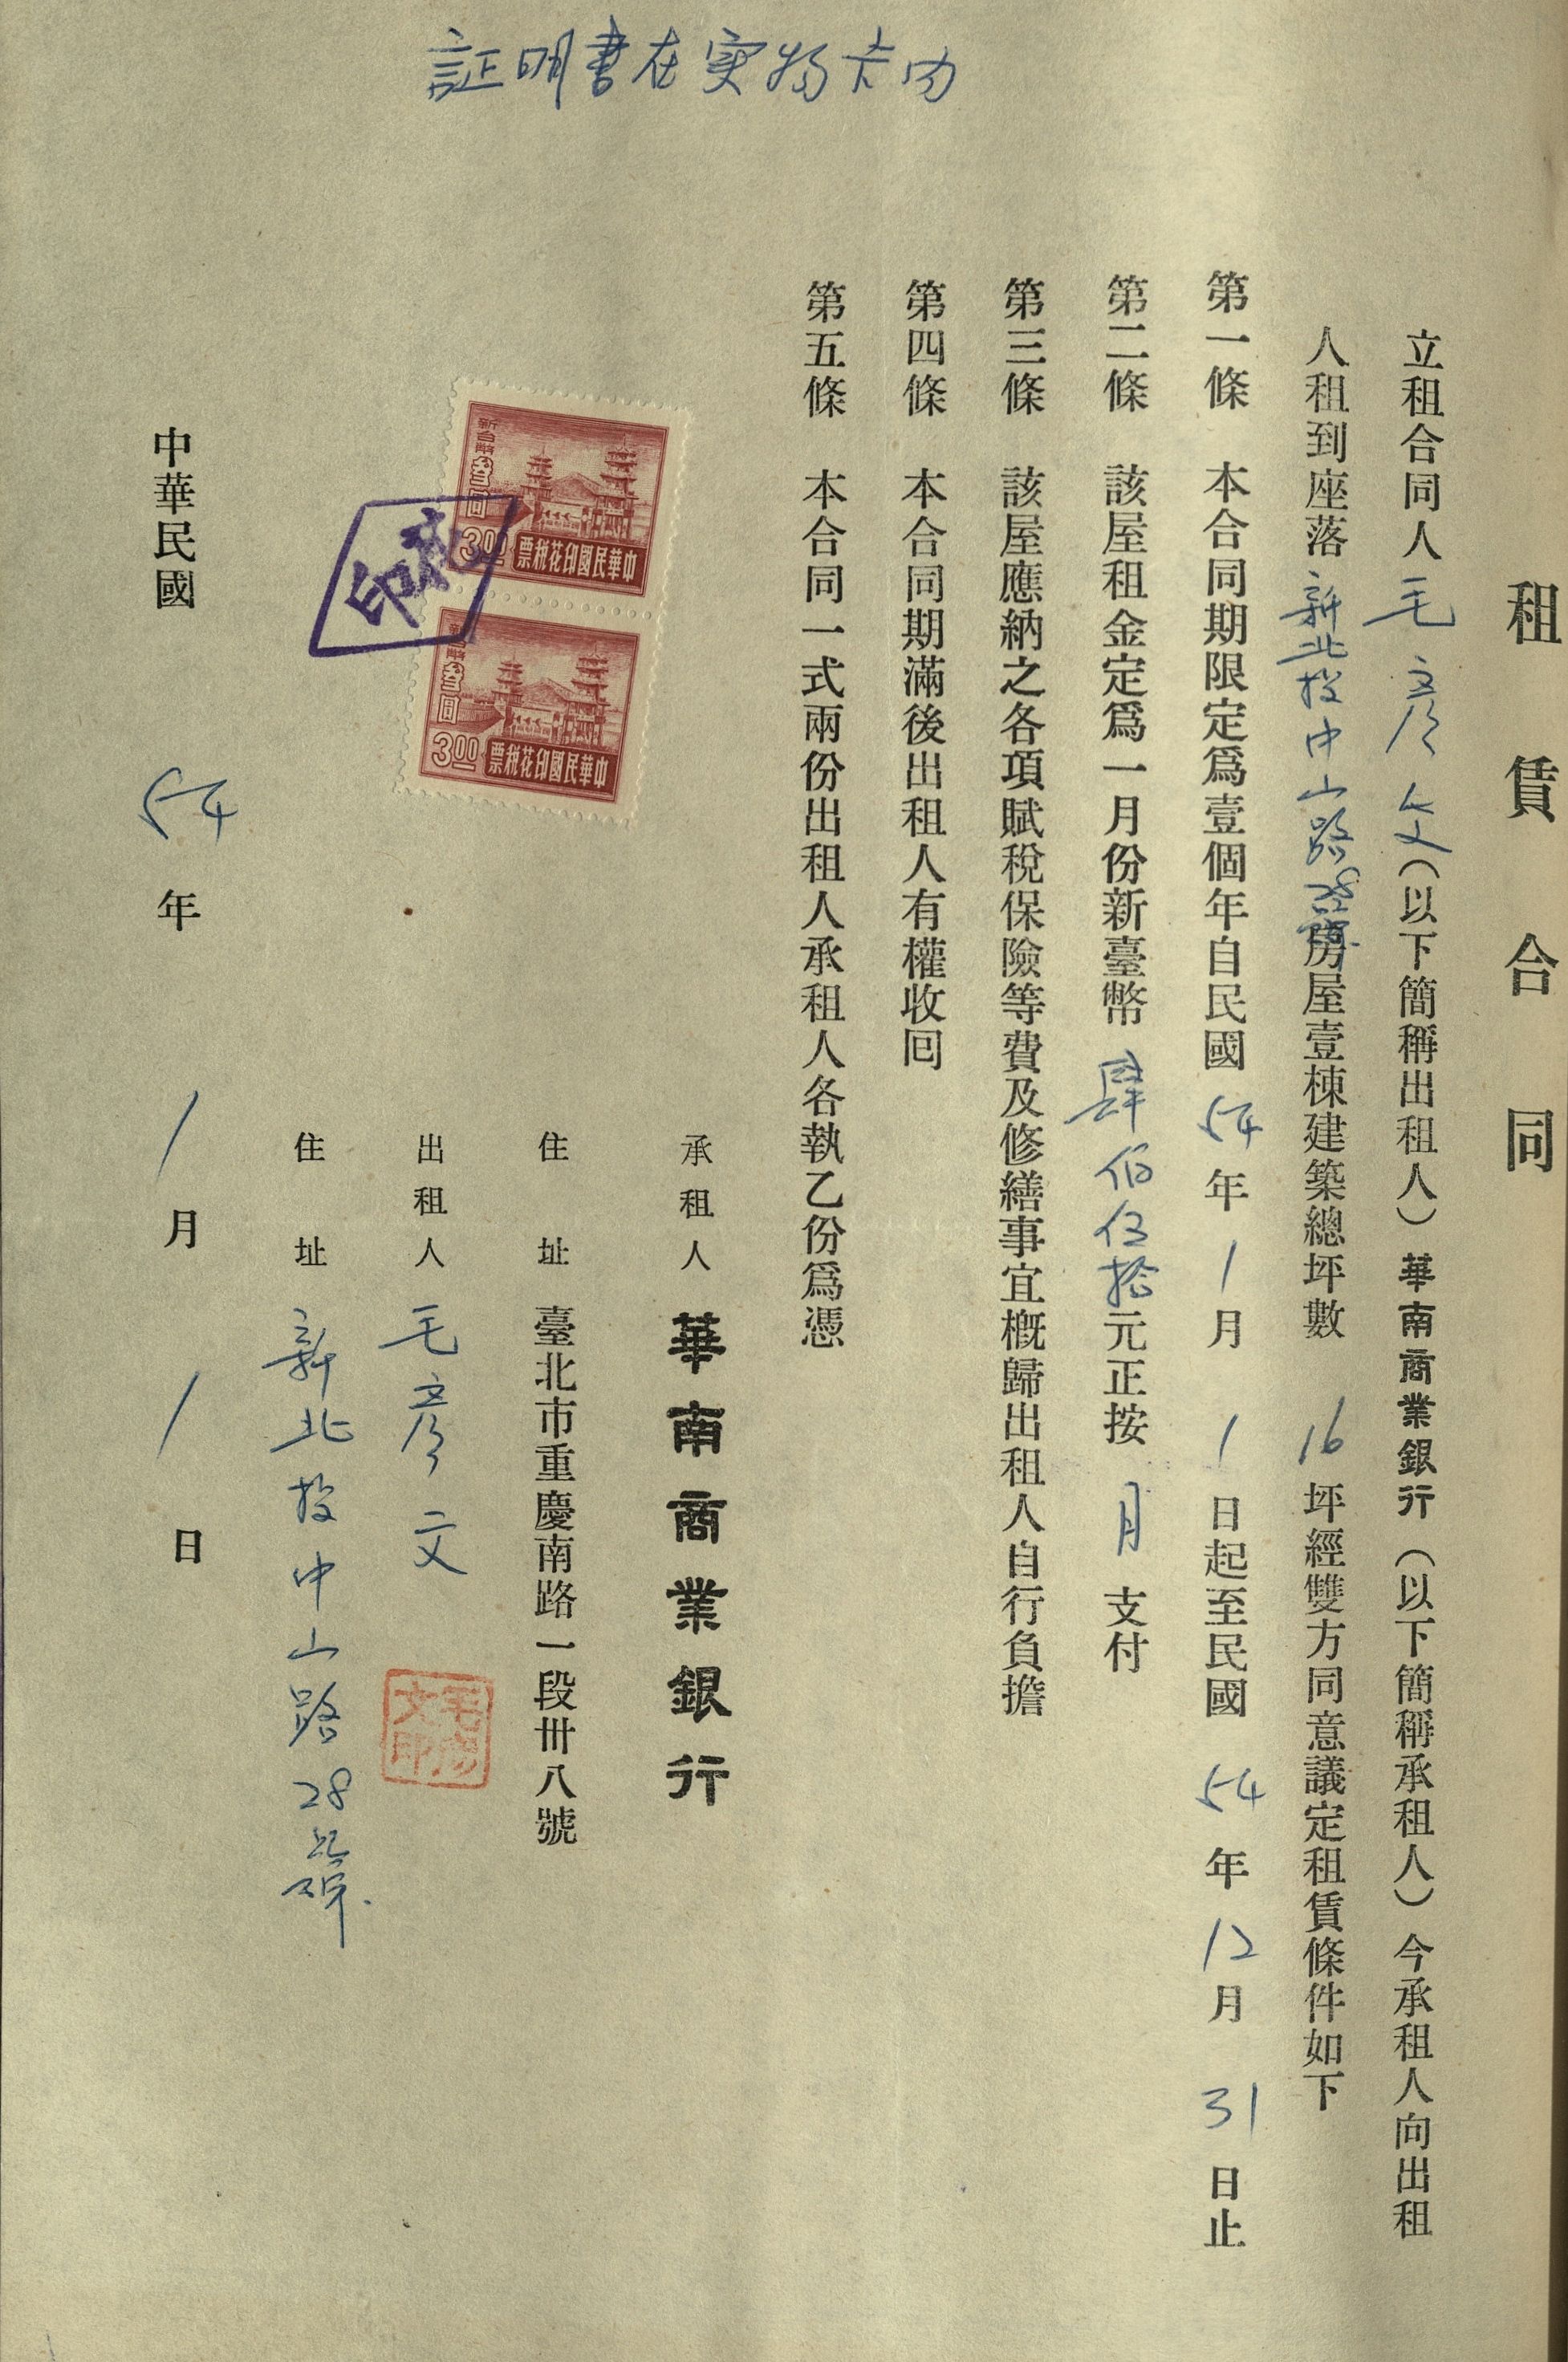 証明書在實物卡內
租賃合同
立租合同人毛彥文(以下簡稱出租人)華南商業銀行(以下簡稱承租人)今承租人向出租
人租到座落新北投中山路28號房屋壹棟建築總坪數16坪經雙方同意議定租賃條件如下
第一條 本合同期限定爲壹個年自民國54年1月1日起至民國54年12月31日止
第二條 該屋租金定爲一月份新臺幣肆佰伍拾元正按月支付
第三條 該屋應納之各項賦稅保險等費及修繕事宜槪歸出租人自行負擔
第四條 本合同期滿後出租人有權收囘
第五條 本合同一式兩份出租人承租人各執乙份爲憑
承租人 華南商業銀行
住址 臺北市重慶南路一段卅八號
出租人 毛彥文
毛彥文印
住址 新北投中山路28號
新台幣叁圓
3.00
中華民國印花稅票
新台幣叁圓
3.00
中華民國印花稅票
中華民國54年1月1日